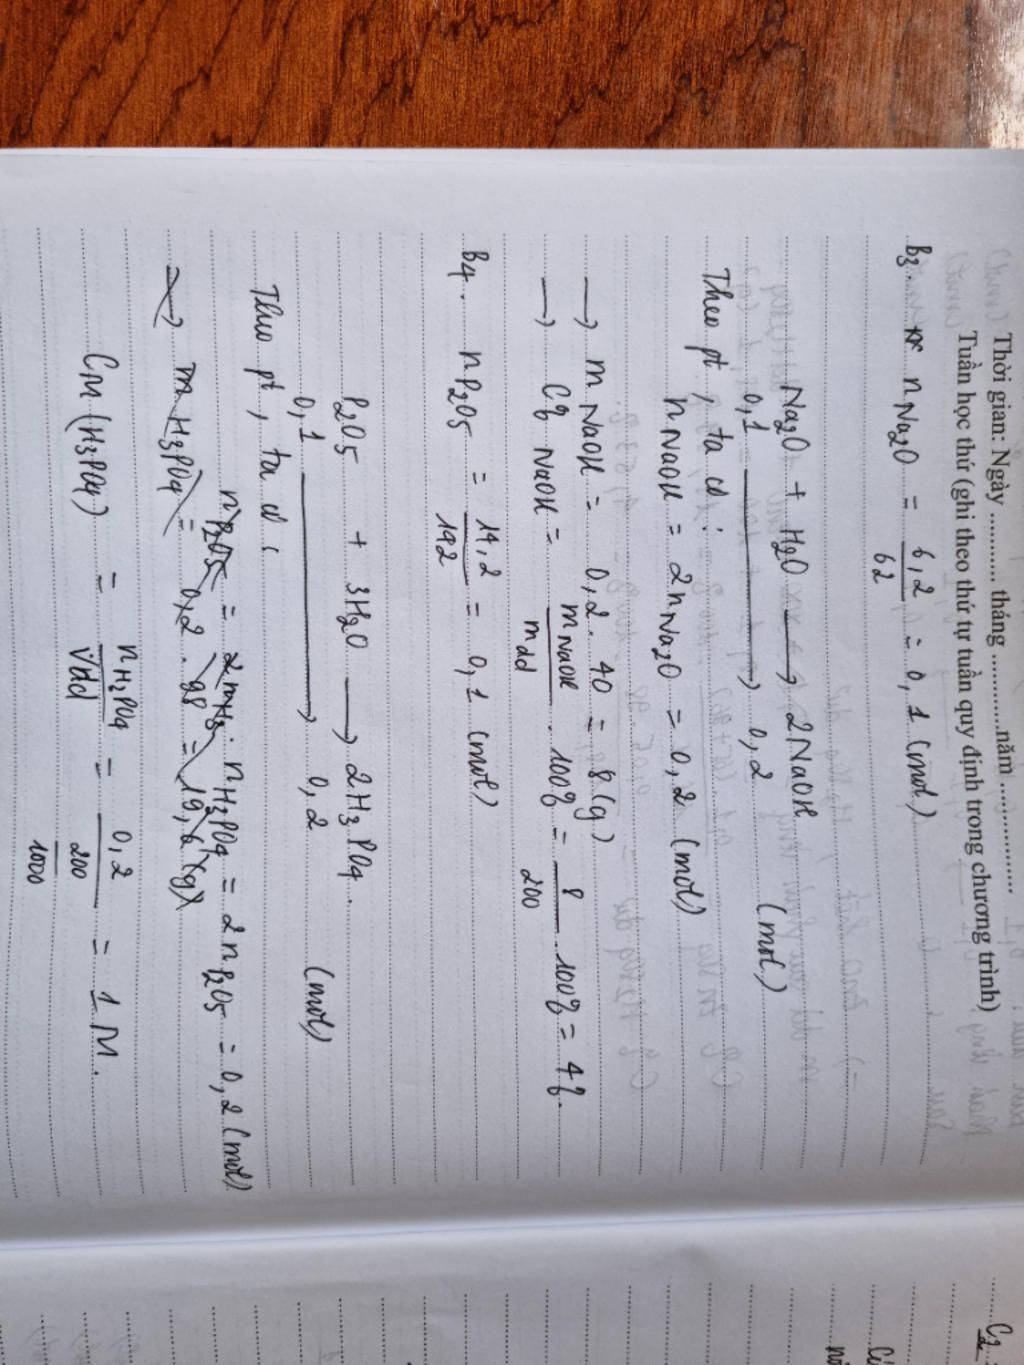 Thời gian: Ngày ........... tháng ..............năm ....................
Tuần học thứ (ghi theo thứ tự tuần quy định trong chương trình)
B3. nNa2O = 6,2/62 = 0,1 (mol)
Na2O + H2O ⟶ 2NaOH
0,1 ⟶ 0,2 (mol)
Theo pt, ta có :
nNaOH = 2nNa2O = 0,2 (mol)
⟶ mNaOH = 0,2. 40 = 8(g)
⟶ C% NaOH = mNaOH/mdd . 100% = 8/200 . 100% = 4%.
B4. nP2O5 = 14,2/142 = 0,1 (mol)
P2O5 + 3H2O ⟶ 2H3PO4.
0,1 ⟶ 0,2 (mol)
Theo pt, ta có :
nP2O5 = 2mH3. nH3PO4 = 2nP2O5 = 0,2 (mol)
⟶ mH3PO4 = 0,2 . 98 = 19,6 (g)
CM (H3PO4) = nH3PO4/Vdd = 0,2/(200/1000) = 1 M.
C2